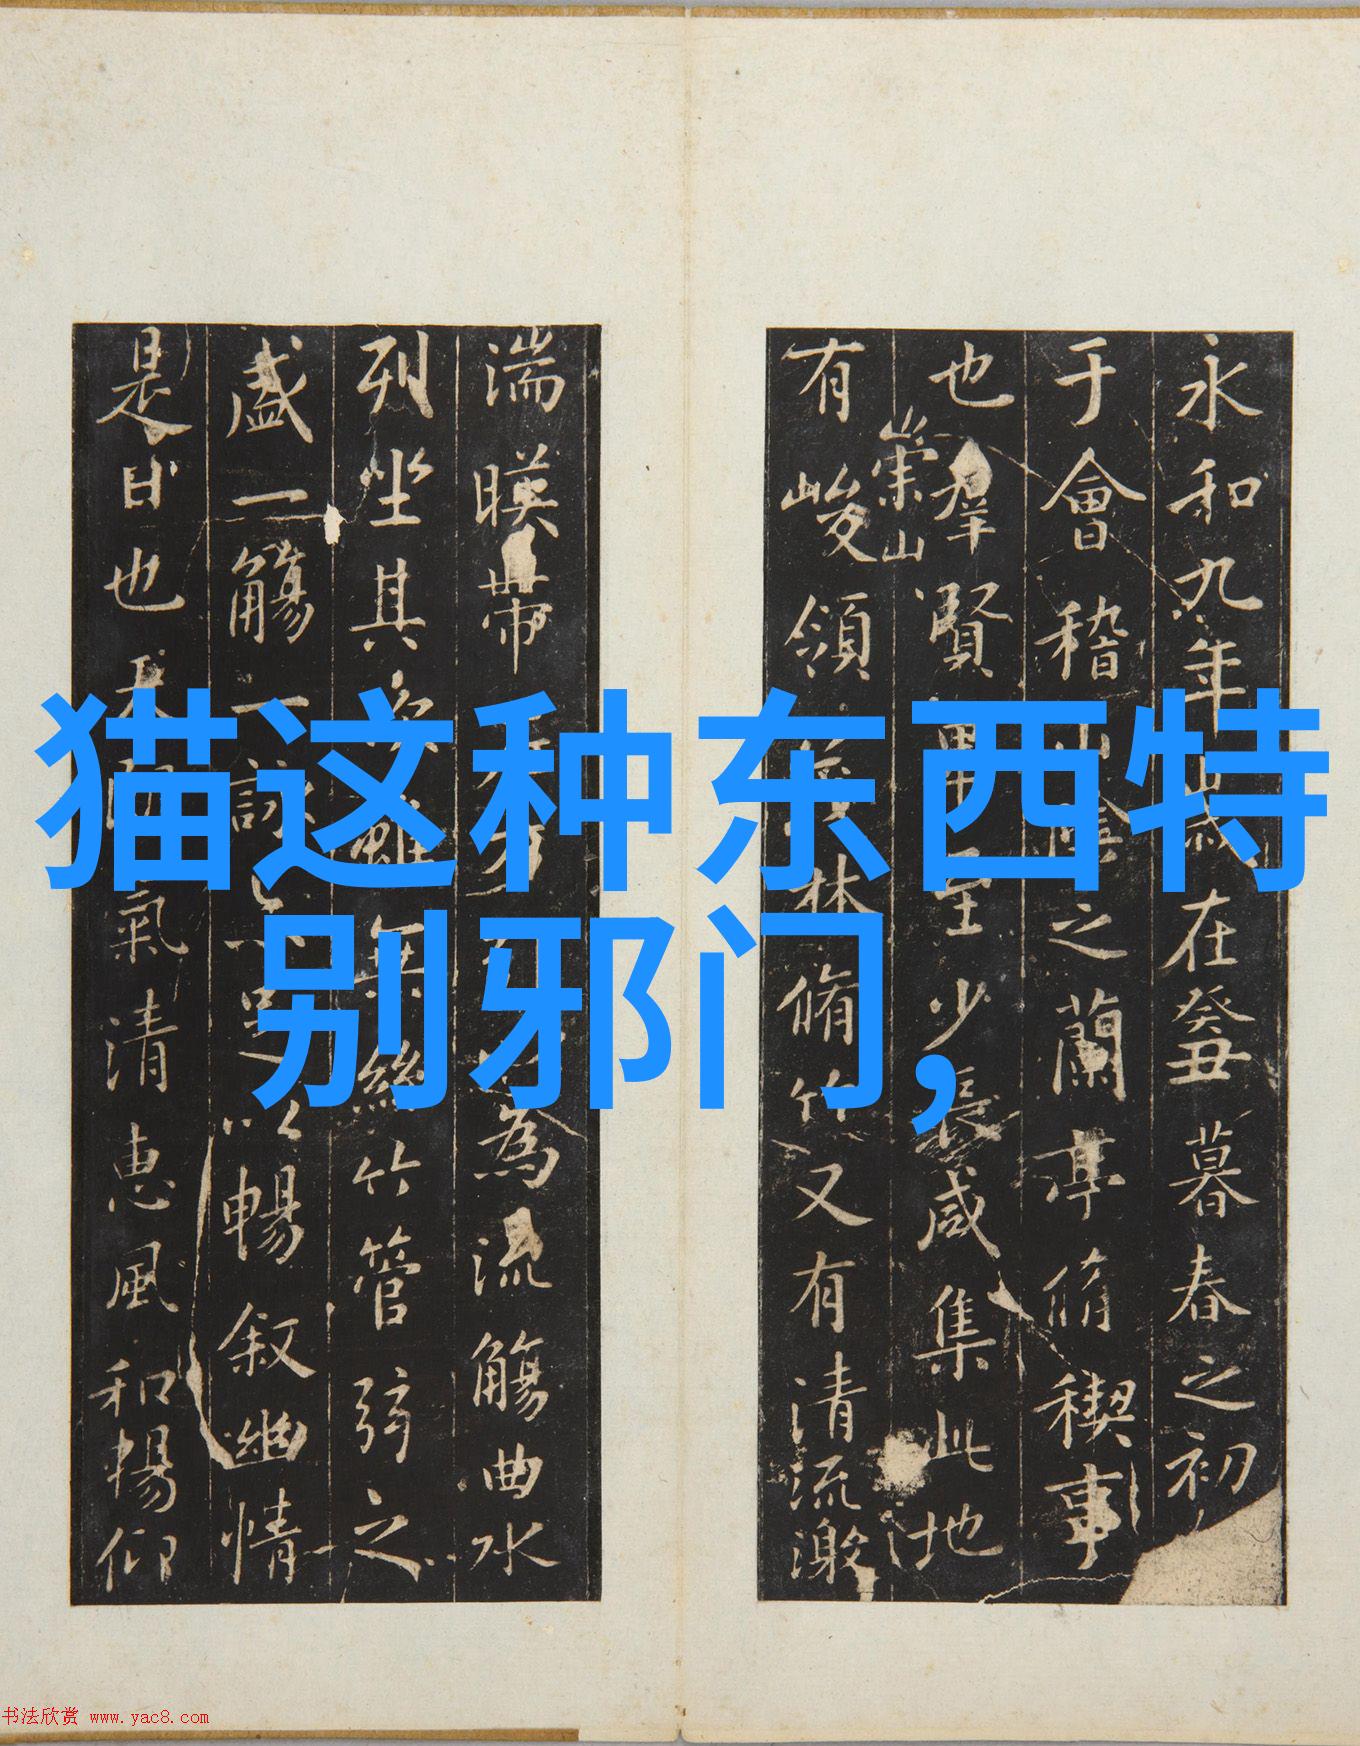 猫这种东西特
别邪门,
永和九年歲在癸丑暮春之初
于會稽山陰之蘭亭脩禊事
也羣賢畢至少長咸集此地
崇山
有峻領茂林脩竹又有清流激
湍暎帶為流觴曲水
列坐其次雖無絲竹管弦之
盛一觴一詠足以暢叙幽情
是日也天氣清惠風和暢仰
书法欣赏 www.yac8.com